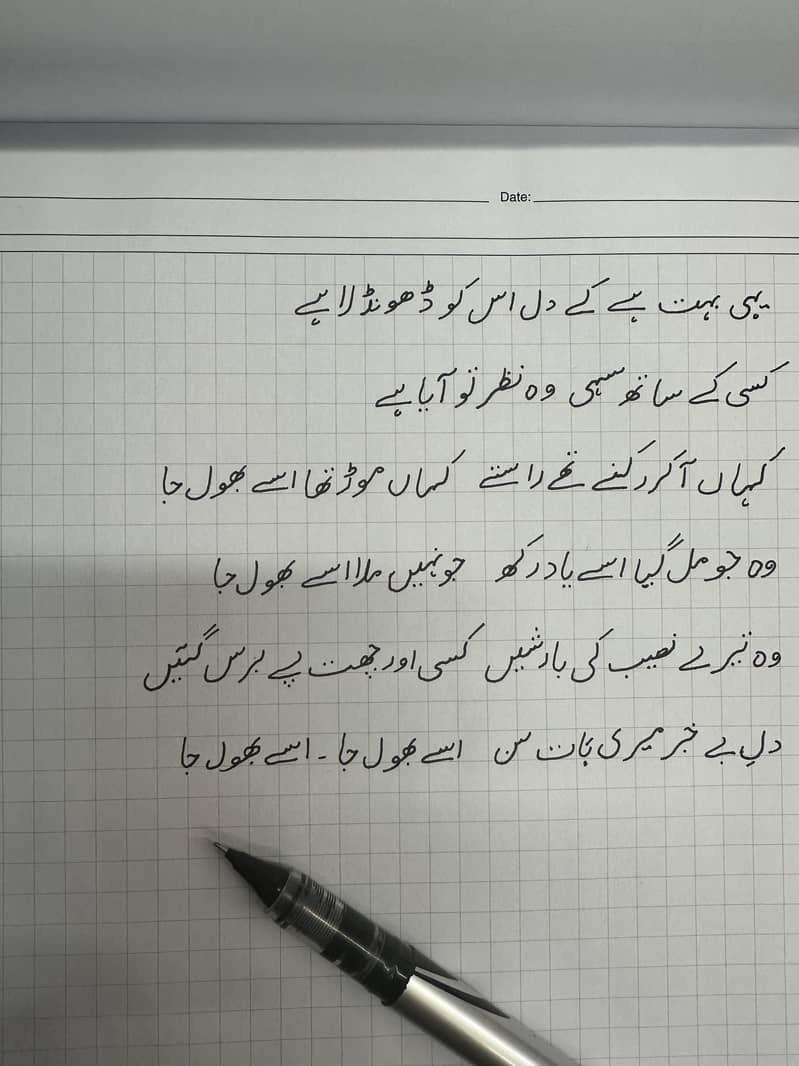 Date:
یہی بہت ہے کے دل اس کو ڈھونڈ لایا ہے
کسی کے ساتھ سہی وہ نظر تو آیا ہے
کہاں آ کر رکنے تھے راستے کہاں موڑ تھا اسے بھول جا
وہ جو مل گیا اسے یاد رکھ جو نہیں ملا اسے بھول جا
وہ تیرے نصیب کی بارشیں کسی اور چھت پے برس گئیں
دلِ بے خبر میری بات سن اسے بھول جا ۔ اسے بھول جا